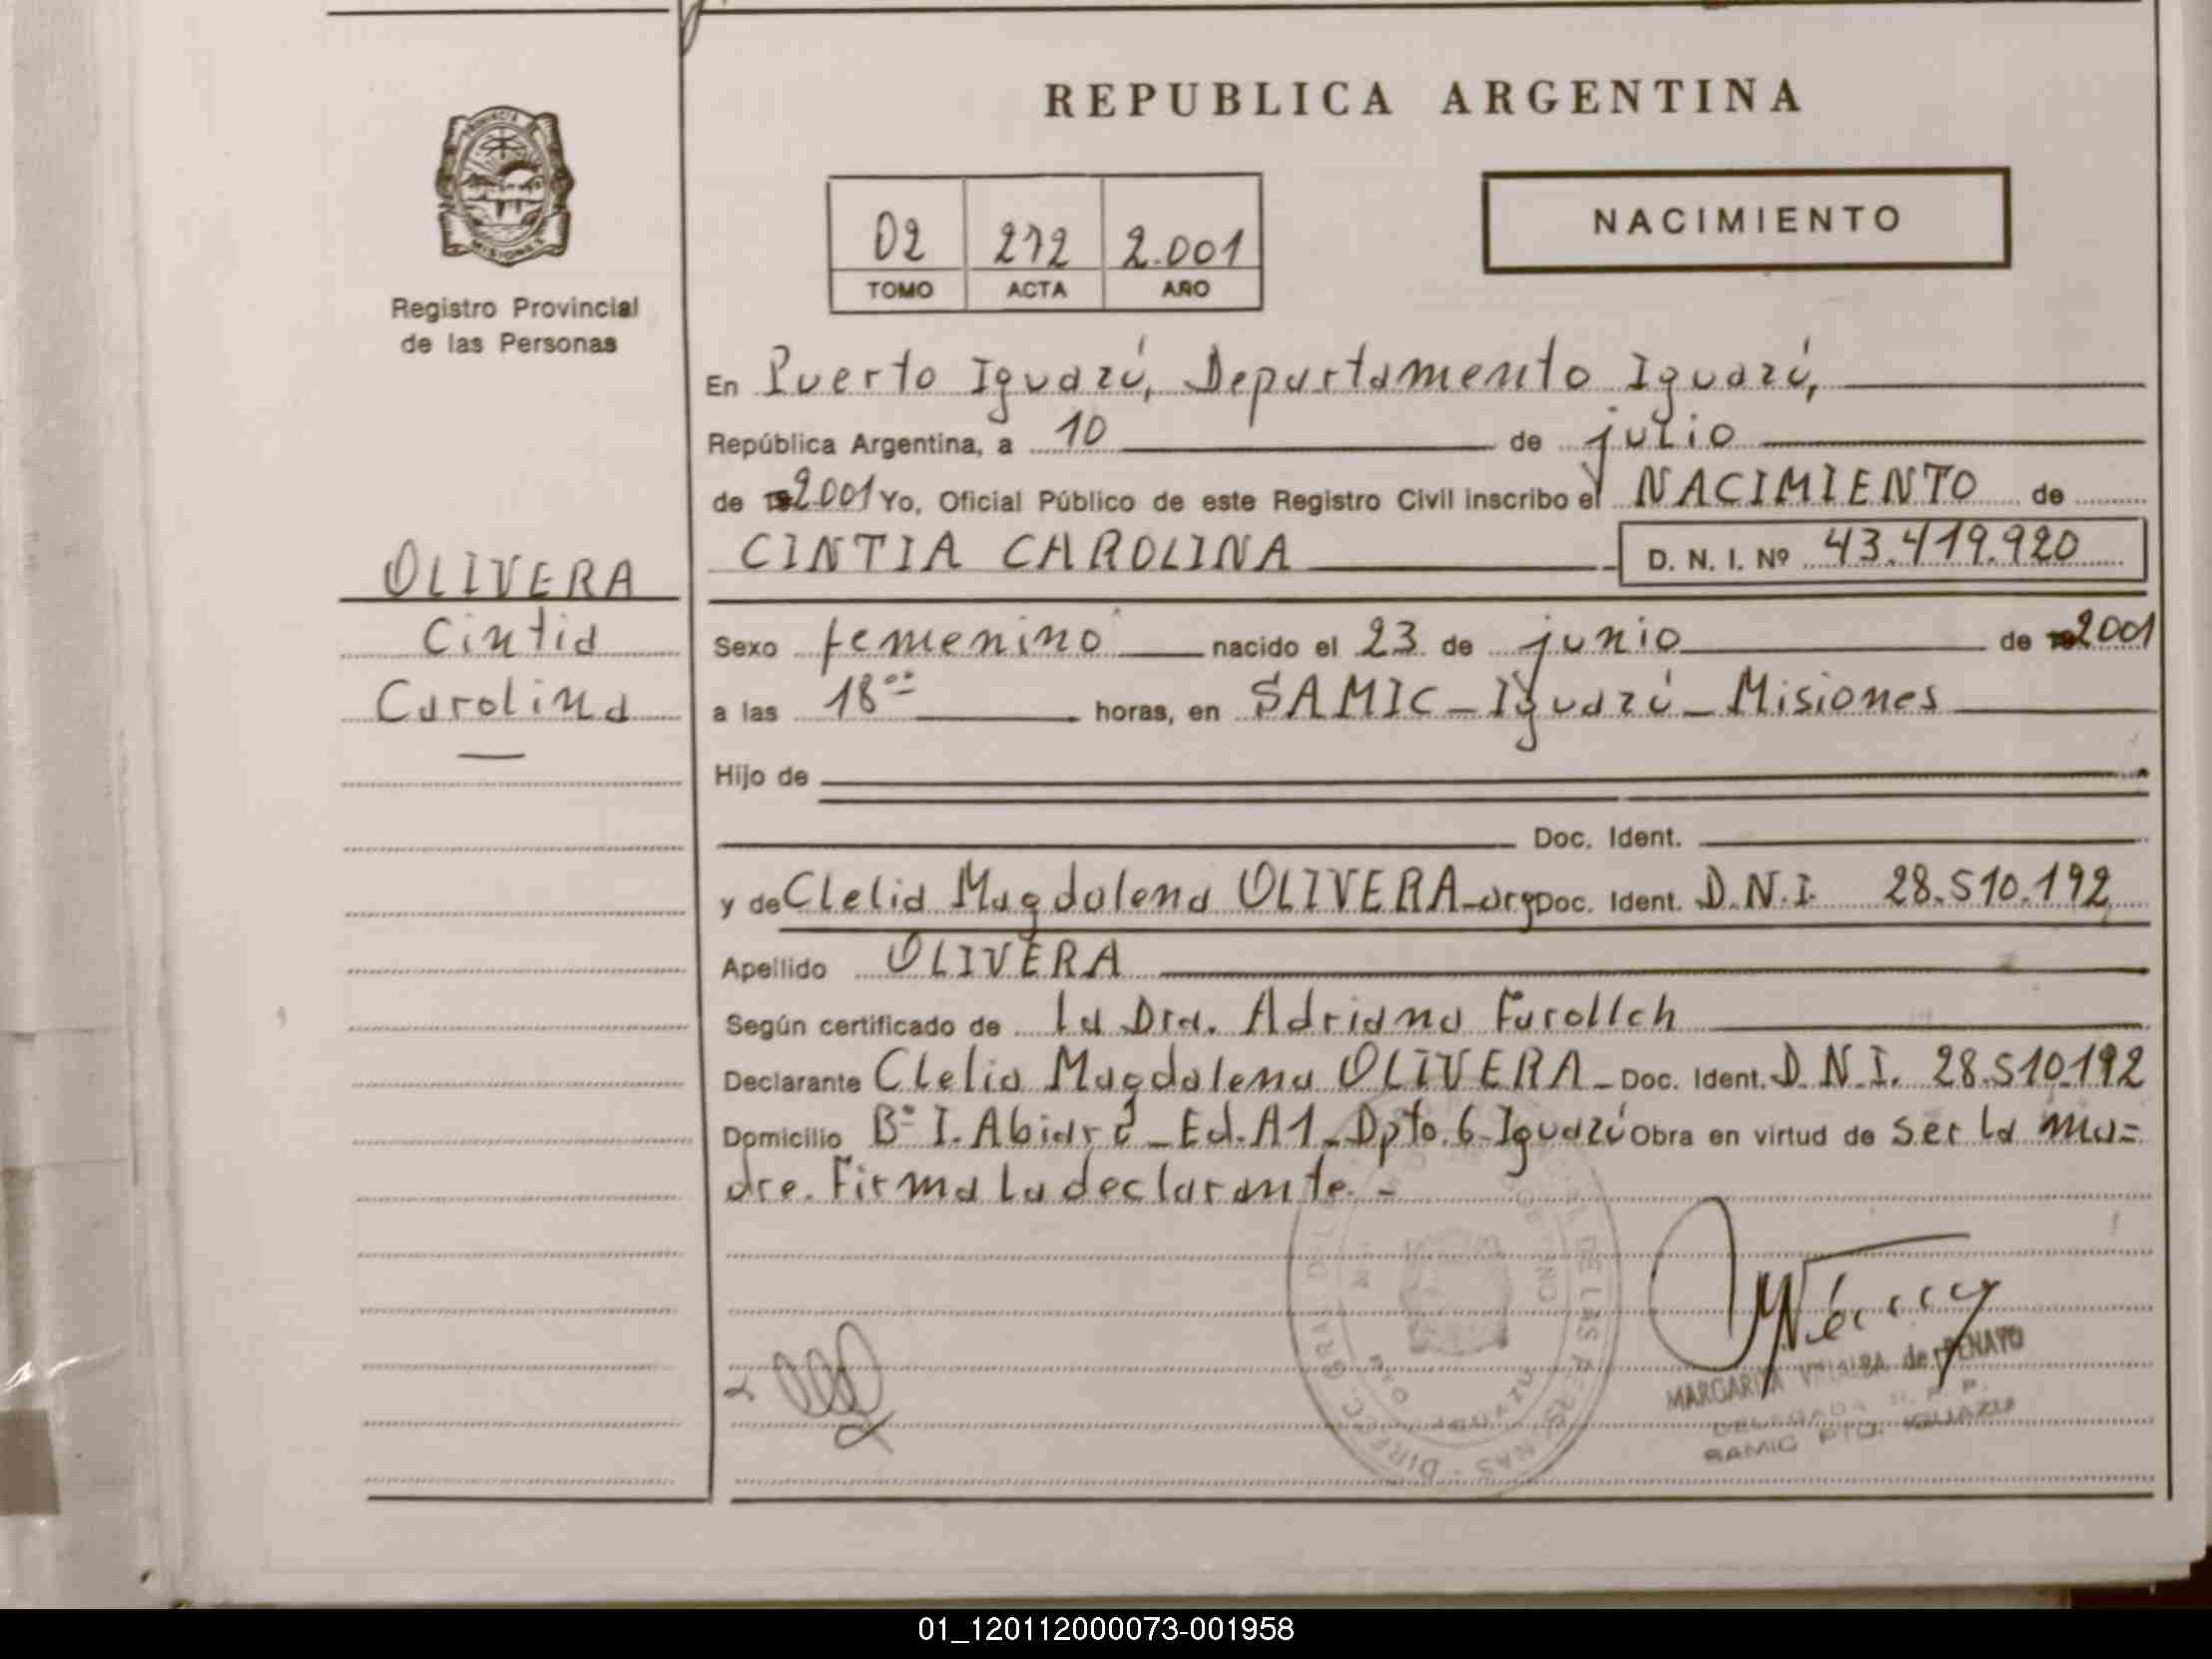 REPUBLICA ARGENTINA
PROVINCIA DE
MISIONES
Registro Provincial
de las Personas
02 272 2.001
TOMO ACTA AÑO
NACIMIENTO
En Puerto Iguazú, Departamento Iguazú,
República Argentina, a 10 de julio
de 2.001 Yo, Oficial Público de este Registro Civil inscribo el NACIMIENTO de
CINTIA CAROLINA D. N. I. Nº 43.419.920
OLIVERA
Cintia
Carolina
Sexo femenino nacido el 23 de junio de 2001
a las 18°° horas, en SAMIC - Iguazú - Misiones
Hijo de
Doc. Ident.
y de Clelia Magdalena OLIVERA - arg Doc. Ident. D.N.I. 28.510.192
Apellido OLIVERA
Según certificado de la Dra. Adriana
Declarante Clelia Magdalena OLIVERA - Doc. Ident. D.N.I. 28.510.192
Domicilio B° I. - Ed. A1 - Dpto. 6 - Iguazú Obra en virtud de ser la ma=
dre. Firma la declarante. -
MARGARITA VILLALBA de PENAYO
DELEGADA R. P. P.
SAMIC PTO. IGUAZU
01_120112000073-001958